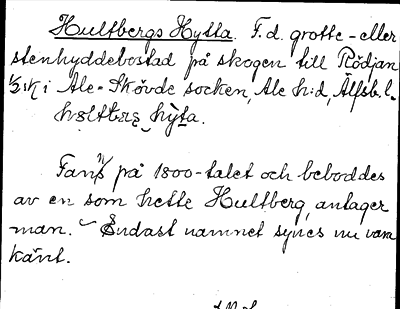 Hultbergs Hytta. F.d. grotte- eller
stenhyddebostad på skogen till Rödjan
1/2 sk i Ale-Skövde socken, Ale h:d, Älfsb. l.
Fans på 1800-talet och beboddes
av en som hette Hultberg, antager
man. Endast namnet synes nu vara
känt.